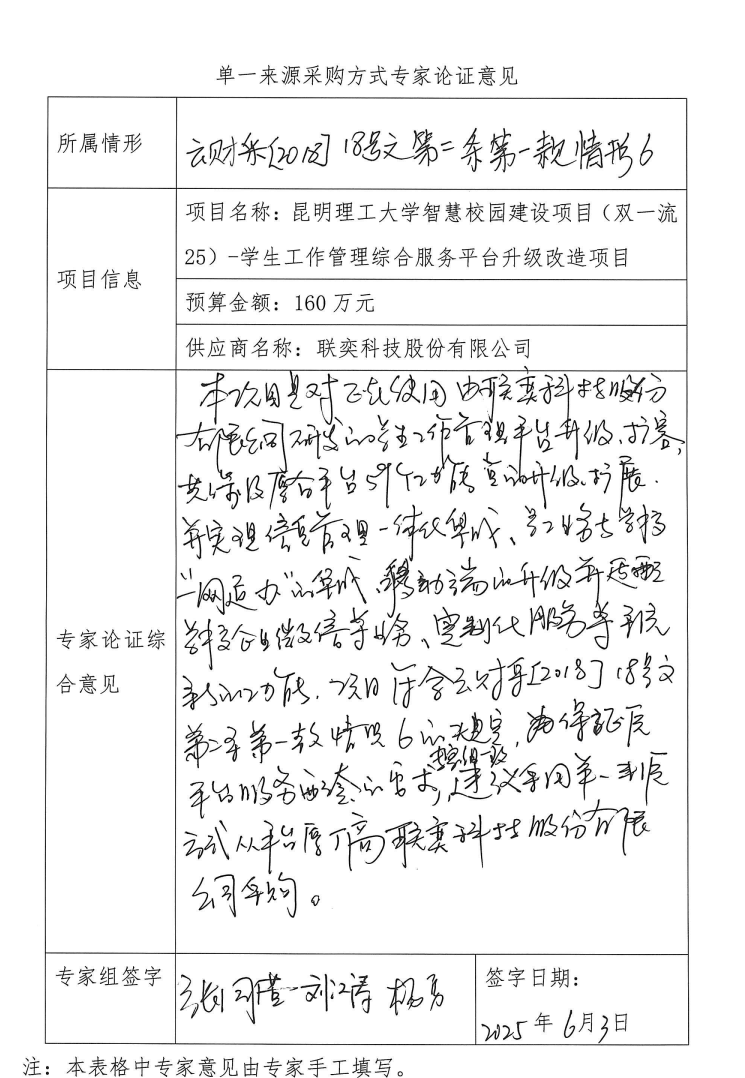 单一来源采购方式专家论证意见
所属情形
云财采[2018]18号文第二条第一款情形6
项目信息
项目名称：昆明理工大学智慧校园建设项目（双一流
25）-学生工作管理综合服务平台升级改造项目
预算金额：160万元
供应商名称：联奕科技股份有限公司
专家论证综
合意见
本项目是对正在使用由联奕科技股份
有限公司研发的学生工作管理平台升级、扩容，
共涉及原合平台59个功能点的升级、扩展.
并实现信息管理一体化集成、学工业务与学校
“一网通办”的集成、移动端的升级并适配
学校企业微信等业务、定制化服务等系统
新的功能. 项目符合云财采[2018]18号文
第二条第一款情形6的规定, 为保证原
平台服务配套的要求, 专家组一致建议采用单一来源
方式从平台原厂商联奕科技股份有限
公司采购。
专家组签字
刘江涛 杨勇
签字日期：
2025年6月3日
注：本表格中专家意见由专家手工填写。